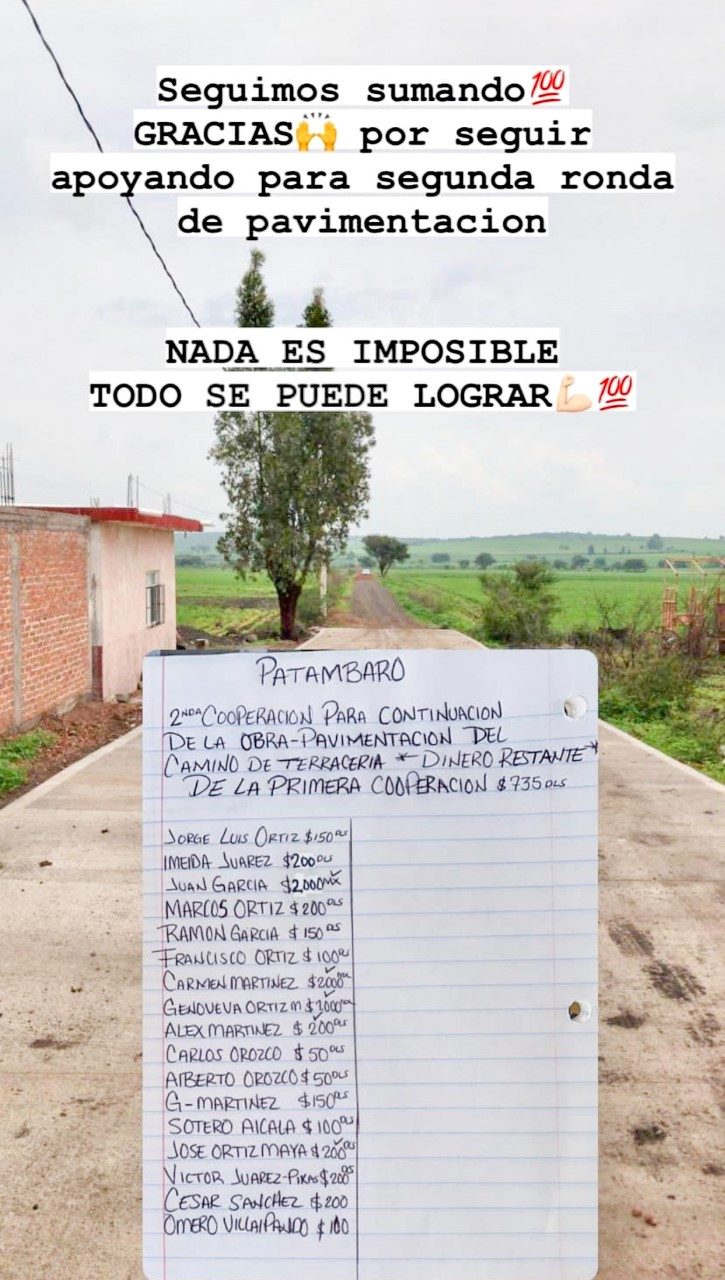 Seguimos sumando💯
GRACIAS🙌 por seguir
apoyando para segunda ronda
de pavimentacion
NADA ES IMPOSIBLE
TODO SE PUEDE LOGRAR💪🏻💯
PATAMBARO
2NDA COOPERACION PARA CONTINUACION
DE LA OBRA-PAVIMENTACION DEL
CAMINO DE TERRACERIA * DINERO RESTANTE *
DE LA PRIMERA COOPERACION $735 DLS
JORGE LUIS ORTIZ $150 DLS
IMELDA JUAREZ $200 DLS
JUAN GARCIA $2,000 MX
MARCOS ORTIZ $200 DLS
RAMON GARCIA $150 DLS
FRANCISCO ORTIZ $100 DLS
CARMEN MARTINEZ $2000
GENOVEVA ORTIZ M $1000
ALEX MARTINEZ $200 DLS
CARLOS OROZCO $50 DLS
ALBERTO OROZCO $50 DLS
G-MARTINEZ $150 DLS
SOTERO ALCALA $100 DLS
JOSE ORTIZ MAYA $200 DLS
VICTOR JUAREZ-PIKAS $200 DLS
CESAR SANCHEZ $200
OMERO VILLALPANDO $100